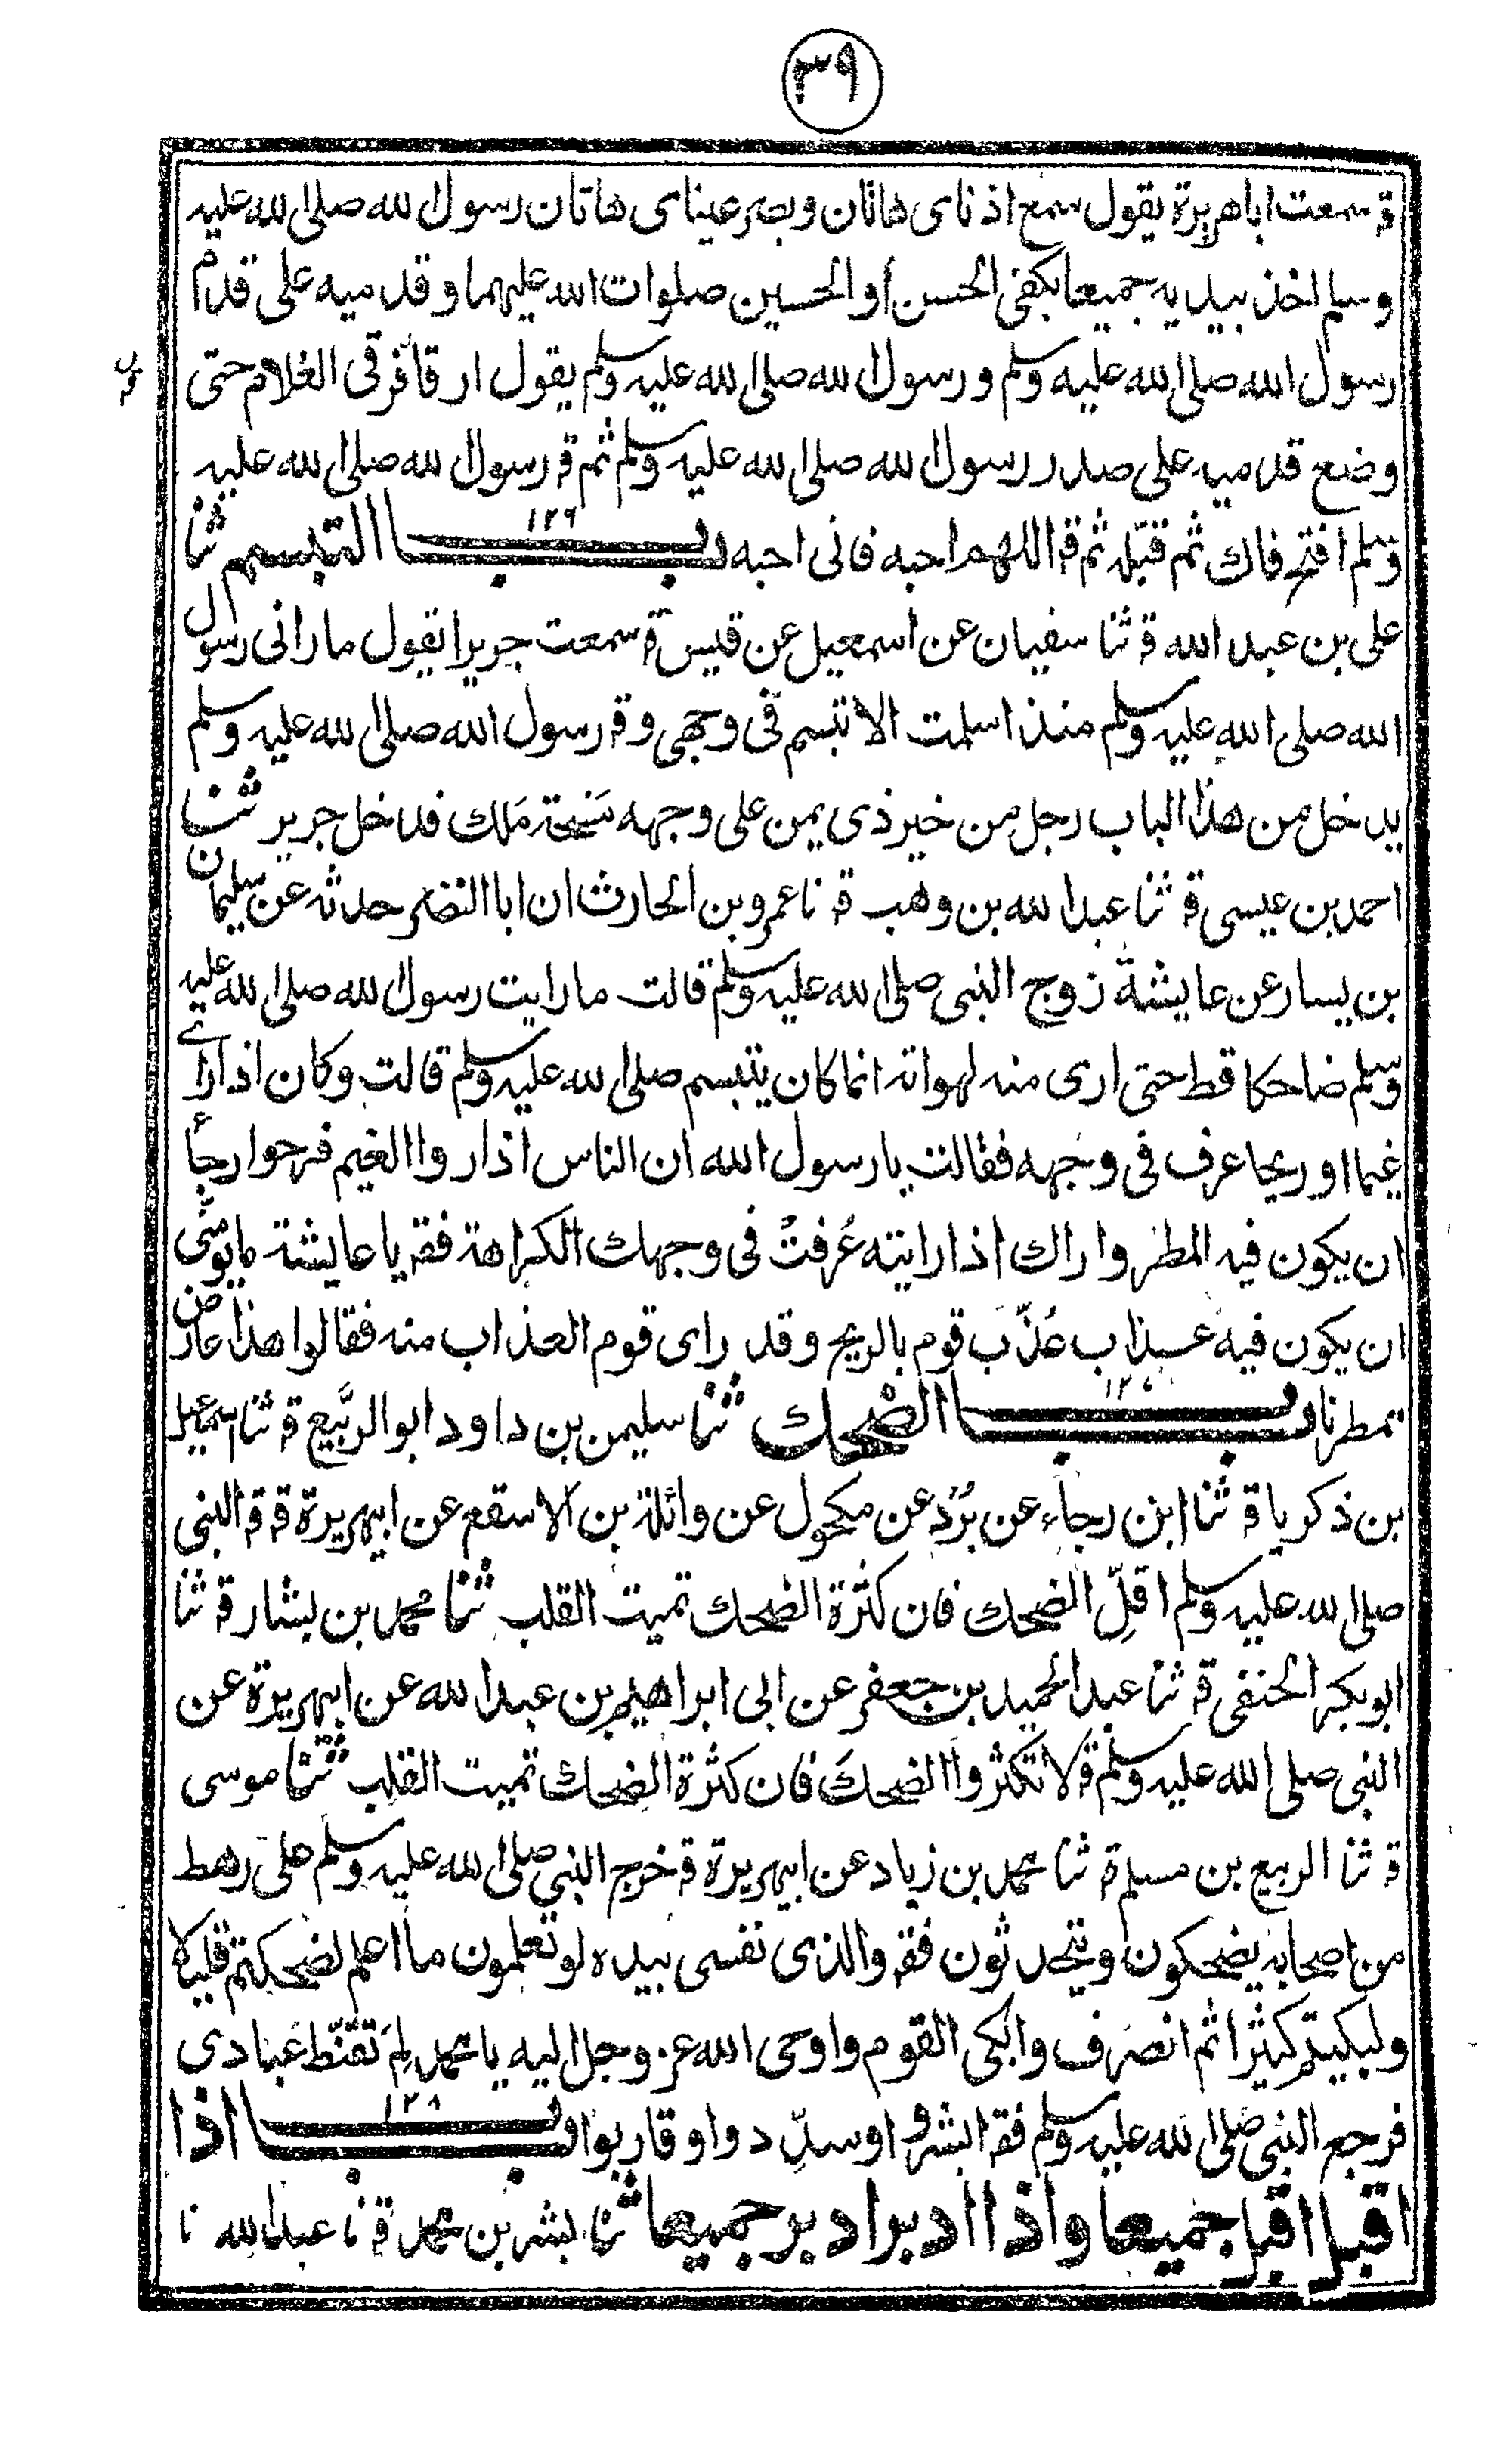 ٣٩
قـ سمعت ابا هريرة يقول سمع اذناى هاتان وبصر عيناى هاتان رسول الله صلى الله عليه
وسلم اخذ بيديه جميعا بكفى الحسن او الحسين صلوات الله عليهما وقدميه على قدم
رسول الله صلى الله عليه وسلم ورسول الله صلى الله عليه وسلم يقول ارقأ فرقى الغلام حتى
وضع قدميه على صدر رسول الله صلى الله عليه وسلم ثم قـ رسول الله صلى الله عليه
وسلم افتح فاك ثم قبّله ثم قـ اللهم احبه فانى احبه باب ١٢٦ التبسم ثنا
على بن عبد الله قـ ثنا سفيان عن اسمعيل عن قيس قـ سمعت جريرا يقول ما رانى رسول
الله صلى الله عليه وسلم منذ اسلمت الا تبسم فى وجهى وقـ رسول الله صلى الله عليه وسلم
يدخل من هذا الباب رجل من خير ذى يمن على وجهه مَسْحة مَلك فدخل جرير ثنا
احمد بن عيسى قـ ثنا عبد الله بن وهب قـ نا عمرو بن الحارث ان ابا النضر حدثه عن سليمان
بن يسار عن عايشة زوج النبى صلى الله عليه وسلم قالت ما رايت رسول الله صلى الله عليه
وسلم ضاحكا قط حتى ارى منه لهواته انما كان يتبسم صلى الله عليه وسلم قالت وكان اذا راى
غيما او ريحا عرف فى وجهه فقالت يا رسول الله ان الناس اذا روا الغيم فرحوا رجأ
ان يكون فيه المطر واراك اذا رايته عُرفتْ فى وجهك الكراهة فقـ يا عايشة ما يومنّى
ان يكون فيه عذاب عُذّب قوم بالريح وقد راى قوم العذاب منه فقالوا هذا عارض
ممطرنا باب الضحك ثنا سليمن بن داود ابو الربّيع قـ ثنا اسمعيل
بن ذكريا قـ ثنا ابن رجاء عن بُرْد عن مكحول عن واثلة بن الاسقع عن ابى هريرة قـ قـ النبى
صلى الله عليه وسلم اقلّ الضحك فان كثرة الضحك تميت القلب ثنا محمد بن بشار قـ ثنا
ابو بكر الحنفى قـ ثنا عبد الحميد بن جعفر عن ابى ابراهيم بن عبد الله عن ابى هريرة عن
النبى صلى الله عليه وسلم قـ لا تكثروا الضحكَ فان كثرة الضحك تميت القلب ثنا موسى
قـ ثنا الربيع بن مسلم قـ ثنا محمد بن زياد عن ابى هريرة قـ خرج النبى صلى الله عليه وسلم على رهط
من اصحابه يضحكون ويتحدثون فقـ والذى نفسى بيده لو تعلمون ما اعلم لضحكتم قليلا
ولبكيتم كثيرا ثم انصرف وابكى القوم واوحى الله عز وجل اليه يا محمد لِمَ تقنّط عبادى
فرجع النبى صلى الله عليه وسلم فقـ ابشروا وسدّدوا وقاربوا باب ١٢٨ اذا
اقبل اقبل جميعا واذا ادبر ادبر جميعا ثنا بشر بن محمد قـ نا عبد الله نا